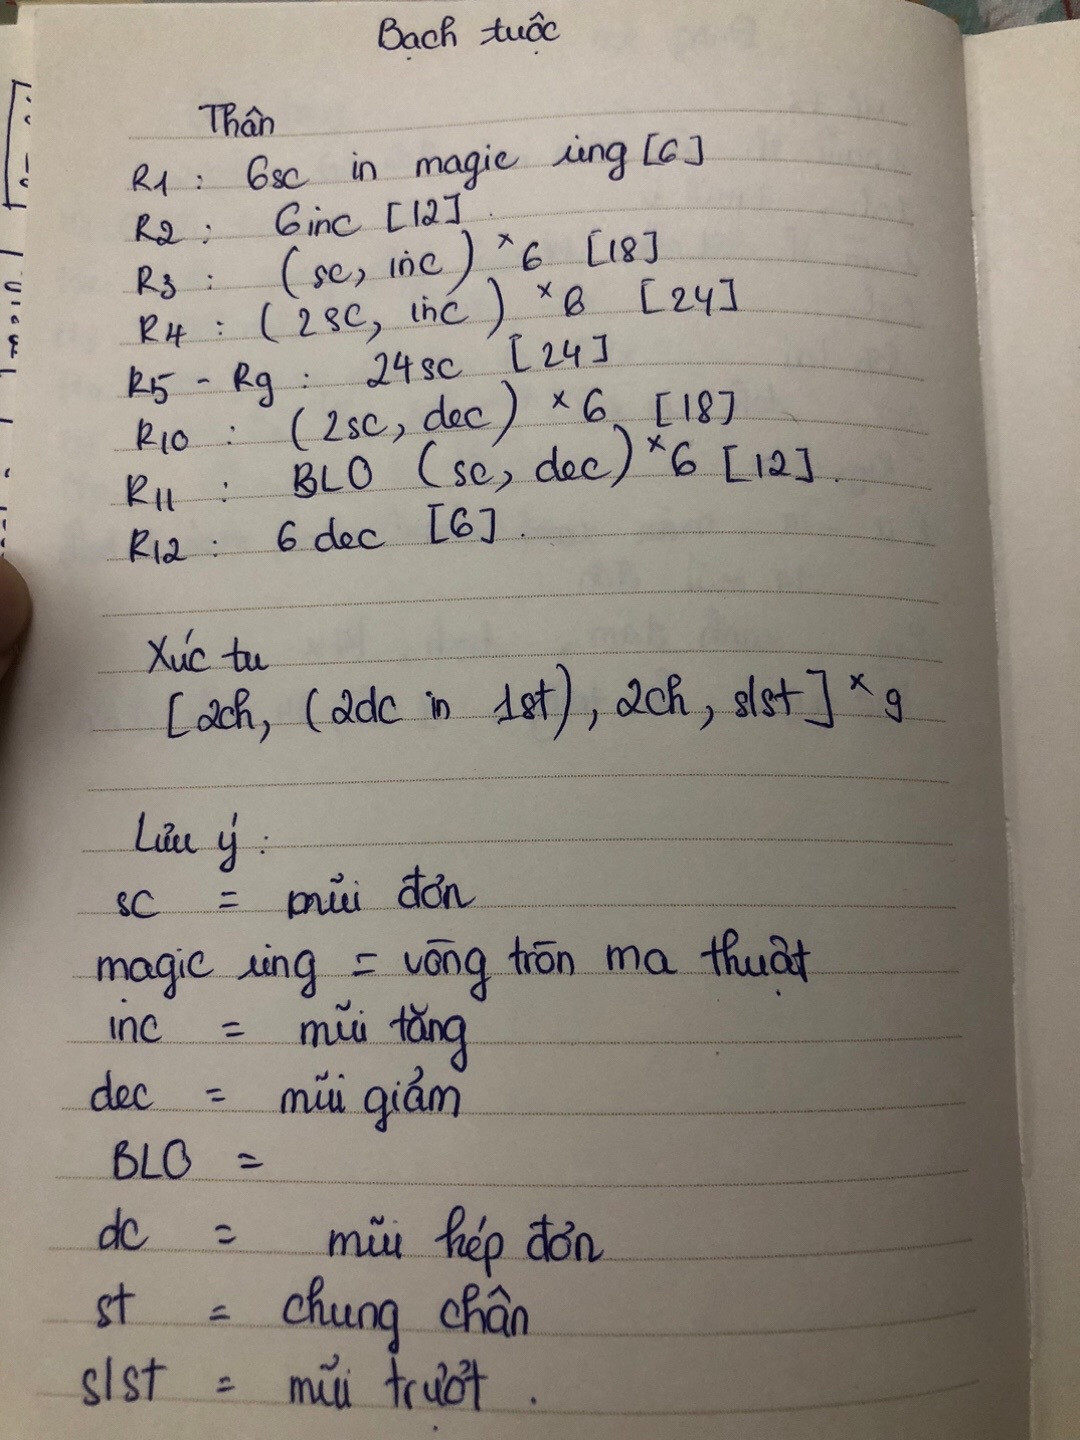 Bạch tuộc
Thân
R1 : 6sc in magic ring [6]
R2 : 6inc [12].
R3 : (sc, inc) × 6 [18]
R4 : (2sc, inc) × 6 [24]
R5 - R9 : 24sc [24]
R10 : (2sc, dec) × 6 [18]
R11 : BLO (sc, dec) × 6 [12].
R12 : 6 dec [6].
Xúc tu
[2ch, (2dc in 1st), 2ch, slst] × 9
Lưu ý :
sc = mũi đơn
magic ring = vòng tròn ma thuật
inc = mũi tăng
dec = mũi giảm
BLO =
dc = mũi kép đơn
st = chung chân
slst = mũi trượt.